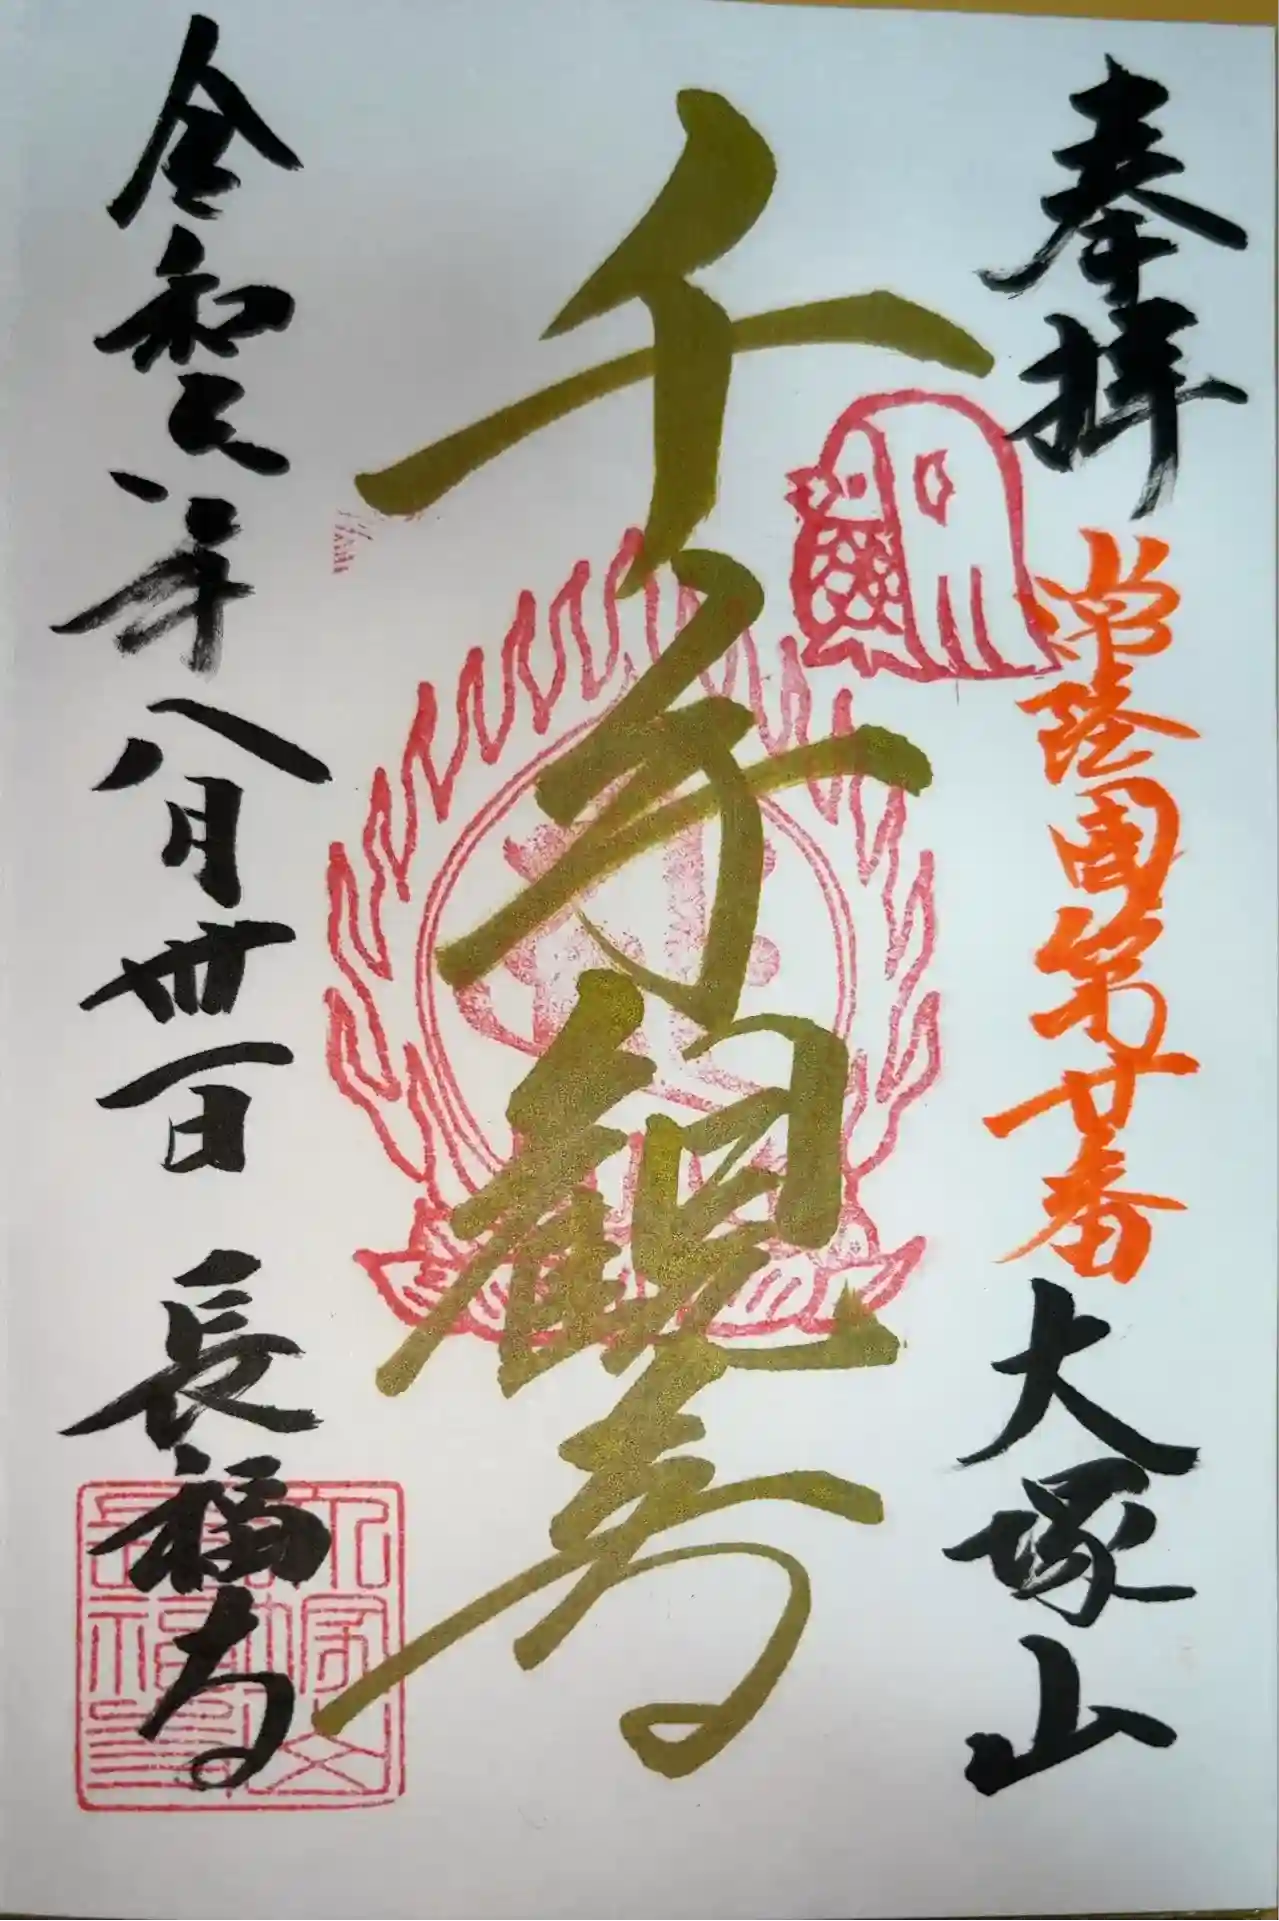 奉拝
常陸国第廿番
大塚山
千手観音
令和 年八月卅一日
長福寺